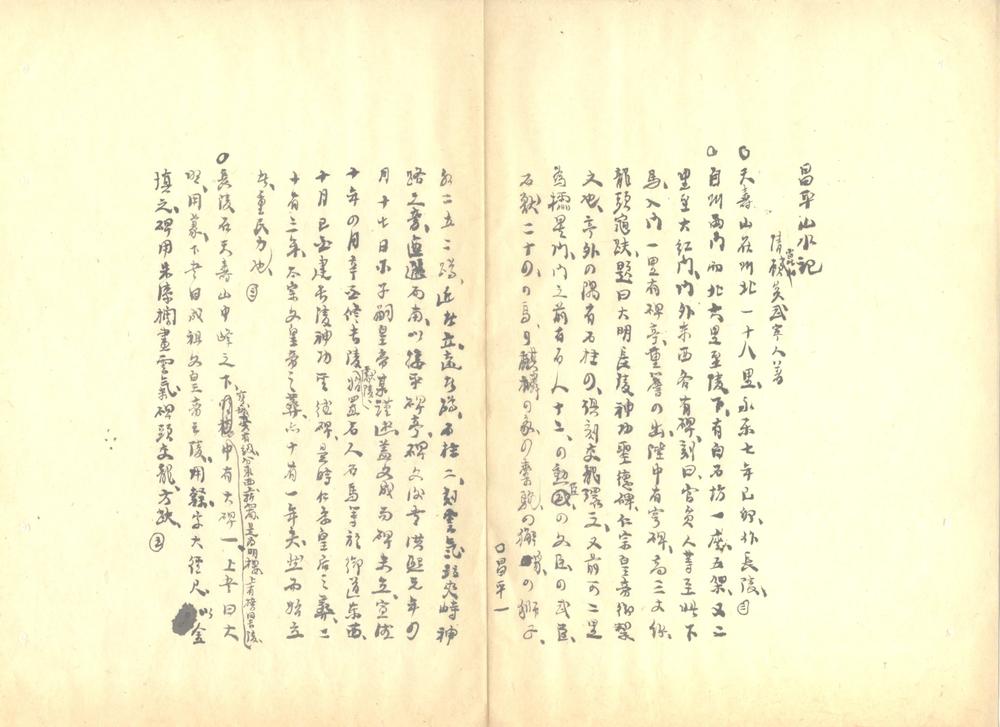 昌平山水記
清崑山顧炎武寧人著
〇天壽山在州北一十八里永樂七年己卯作長陵
〇自州西門而北六里至陵下有白石坊一座五架又二
里至大紅門門外東西各有碑刻曰官員人等至此下
馬入門一里有碑亭重簷四出陛中有穹碑高三丈餘
龍頭龜趺題曰大明長陵神功聖德碑仁宗皇帝御製
文也亭外四隅有石柱四俱刻交龍環之又前可二里
為欞星門門之前有石人十二勳臣四文臣四武臣
石獸二十四馬四麒麟四象四橐駝四獬豸四獅子
〇昌平一
各二五二蹲近北立遠者蹲石柱二刻雲氣夾峙神
路之旁迤邐而南以接乎碑亭碑文作於洪熙元年四
月十七日子嗣皇帝某謹述蓋文成而碑未立宣德
十年四月辛酉修長陵獻陵始置石人石馬等於御道東西
十月己酉建長陵神功聖德碑是時仁孝皇后之葬二
十有三年太宗文皇帝之葬亦十有一年矣然而始立
者重民力也
〇長陵在天壽山中峰之下中有大碑一上書曰大
上為明樓上有榜曰長陵
明用篆下書曰成祖文皇帝之陵用隸字大徑尺以金
填之碑用朱漆欄畫雲氣碑頭交龍方趺